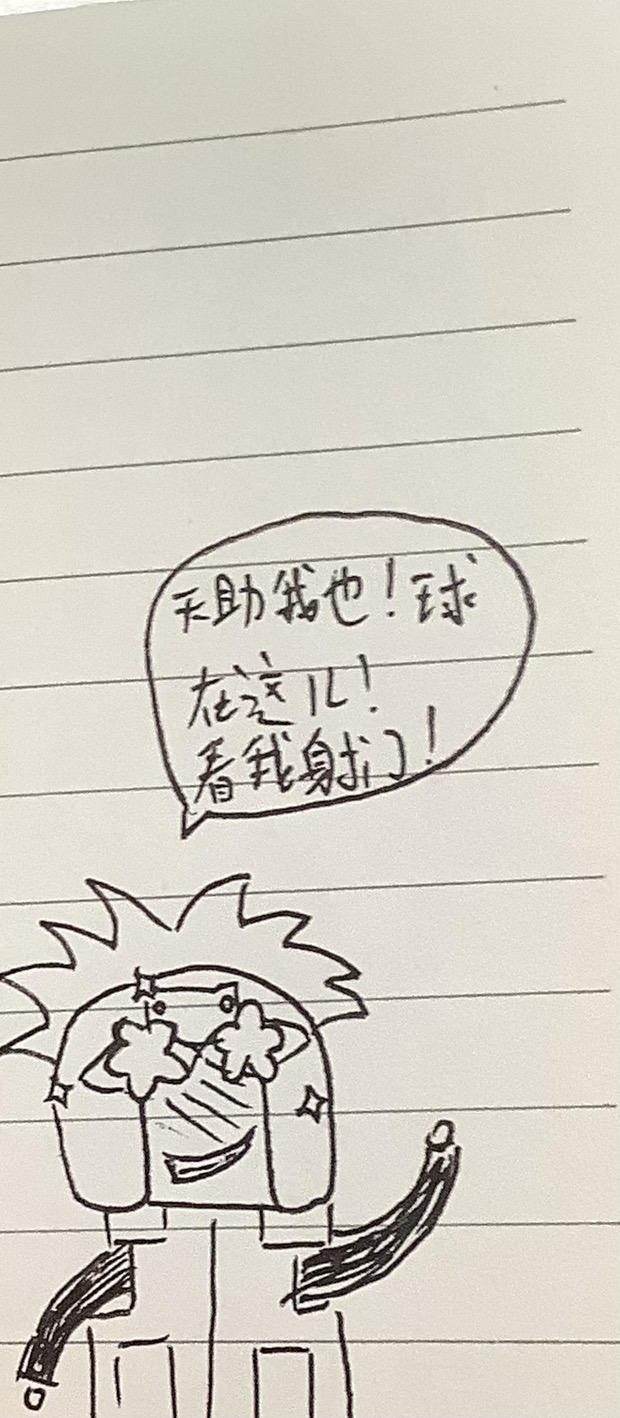 天助我也！球
在这儿！
看我射门！